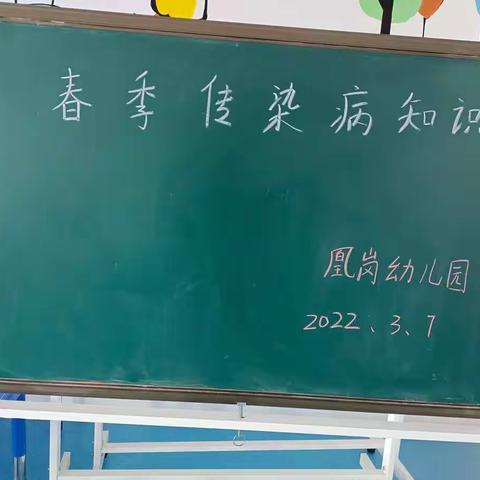 春季传染病知识
凰岗幼儿园
2022、3、7